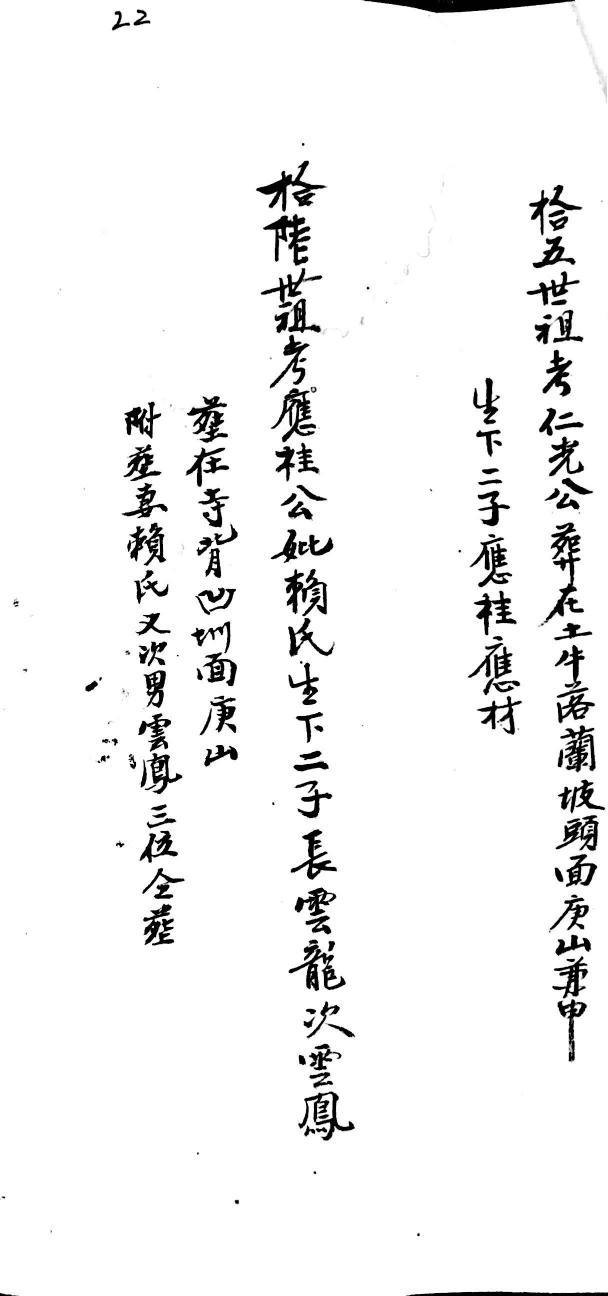 22
拾五世祖考仁光公葬在土牛落蘭坡頭面庚山兼申
生下二子應桂應材
拾陸世祖考應桂公妣賴氏生下二子長雲龍次雲鳳
塟在寺背凹圳面庚山
附塟妻賴氏又次男雲鳳三位仝塟